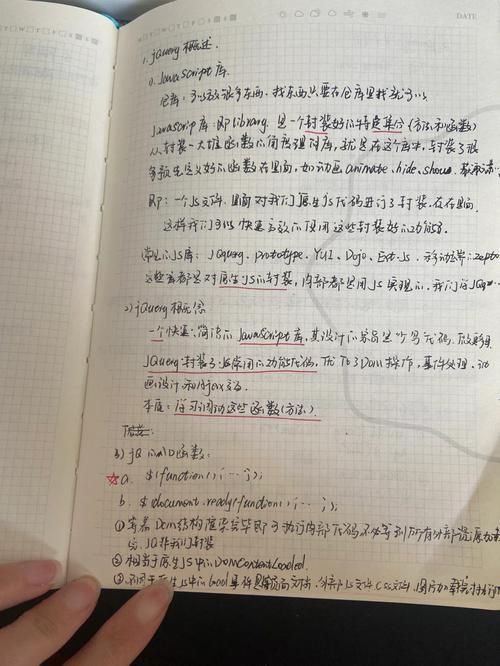 DATE
1. jQuery概述.
1). JavaScript库.
仓库: 可以放很多东西, 找东西只要在仓库里找就可以
Javascrip库: 即library 是一个封装好的特定集合(方法和函数)
从封装一大堆函数的角度理解库, 就是在这个库中, 封装了很
多预先定义好的函数在里面, 如动画animate、hide、show、获取元素
即: 一个JS文件, 里面对我们原生js代码进行了封装, 存在里面,
这样我们可以快速高效的使用这些封装好的功能了.
常见的JS库: JQuery、prototype、YUI、Dojo、Ext Js、移动端zepto
这些库都是对原生JS的封装, 内部都是用JS实现的, 我们学JQ
2) jQuery概念
一个快速、简洁的JavaScript库, 其设计的宗旨是"
JQuery封装了JS常用的功能代码, 优化了Dom操作, 事件处理、动
画设计和Ajax交互.
本质: 学习调用这些函数(方法).
3) jQ的入口函数:
☆a. $(function(){…});
b. $document.ready(function(){…});
①等着Dom结构渲染完毕即可执行内部代码不必等到所有外部资源加载
完, JQ帮我们封装
②相当于原生JS中的DOMContentLoaded.
③不同于原生JS中的load是等页面文档, 外部JS文件, CSS文件, 图片加载完